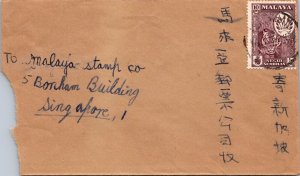 To Malaya stamp co
5 Bonham Building
Singapore, 1
寄新加坡
馬來亞郵票公司收
MALAYA
10
NEGRI
SEMBILAN